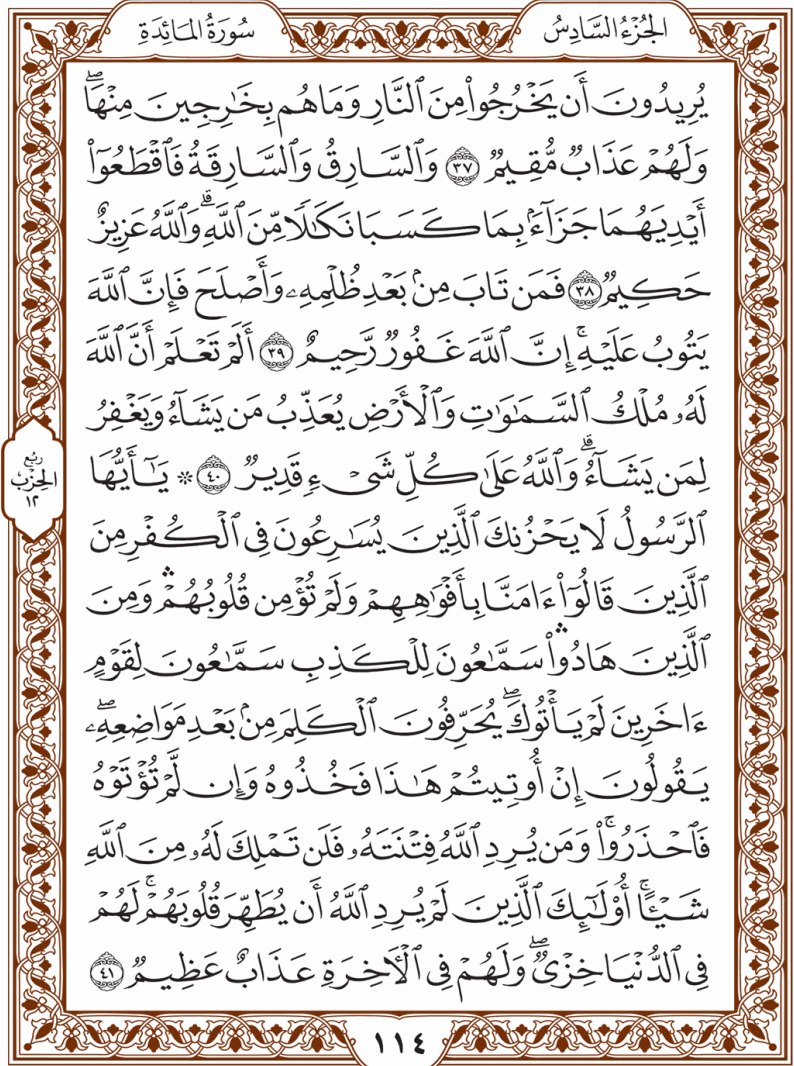 الجُزْءُ السَّادِسُ
سُورَةُ المَائِدَةِ
يُرِيدُونَ أَن يَخْرُجُواْ مِنَ ٱلنَّارِ وَمَا هُم بِخَٰرِجِينَ مِنْهَاۖ
وَلَهُمْ عَذَابٌ مُّقِيمٌ ٣٧ وَٱلسَّارِقُ وَٱلسَّارِقَةُ فَٱقْطَعُوٓاْ
أَيْدِيَهُمَا جَزَآءَۢ بِمَا كَسَبَا نَكَٰلًا مِّنَ ٱللَّهِۗ وَٱللَّهُ عَزِيزٌ
حَكِيمٌ ٣٨ فَمَن تَابَ مِنۢ بَعْدِ ظُلْمِهِۦ وَأَصْلَحَ فَإِنَّ ٱللَّهَ
يَتُوبُ عَلَيْهِۚ إِنَّ ٱللَّهَ غَفُورٌ رَّحِيمٌ ٣٩ أَلَمْ تَعْلَمْ أَنَّ ٱللَّهَ
لَهُۥ مُلْكُ ٱلسَّمَٰوَٰتِ وَٱلْأَرْضِ يُعَذِّبُ مَن يَشَآءُ وَيَغْفِرُ
لِمَن يَشَآءُۗ وَٱللَّهُ عَلَىٰ كُلِّ شَىْءٍ قَدِيرٌ ٤٠ ۞ يَٰٓأَيُّهَا
ٱلرَّسُولُ لَا يَحْزُنكَ ٱلَّذِينَ يُسَٰرِعُونَ فِى ٱلْكُفْرِ مِنَ
ٱلَّذِينَ قَالُوٓاْ ءَامَنَّا بِأَفْوَٰهِهِمْ وَلَمْ تُؤْمِن قُلُوبُهُمْۛ وَمِنَ
ٱلَّذِينَ هَادُواْۛ سَمَّٰعُونَ لِلْكَذِبِ سَمَّٰعُونَ لِقَوْمٍ
ءَاخَرِينَ لَمْ يَأْتُوكَۖ يُحَرِّفُونَ ٱلْكَلِمَ مِنۢ بَعْدِ مَوَاضِعِهِۦۖ
يَقُولُونَ إِنْ أُوتِيتُمْ هَٰذَا فَخُذُوهُ وَإِن لَّمْ تُؤْتَوْهُ
فَٱحْذَرُواْۚ وَمَن يُرِدِ ٱللَّهُ فِتْنَتَهُۥ فَلَن تَمْلِكَ لَهُۥ مِنَ ٱللَّهِ
شَيْـًٔاۚ أُوْلَٰٓئِكَ ٱلَّذِينَ لَمْ يُرِدِ ٱللَّهُ أَن يُطَهِّرَ قُلُوبَهُمْۚ لَهُمْ
فِى ٱلدُّنْيَا خِزْىٌۖ وَلَهُمْ فِى ٱلْأَخِرَةِ عَذَابٌ عَظِيمٌ ٤١
رُبُعُ
الحِزْبِ
١٢
١١٤